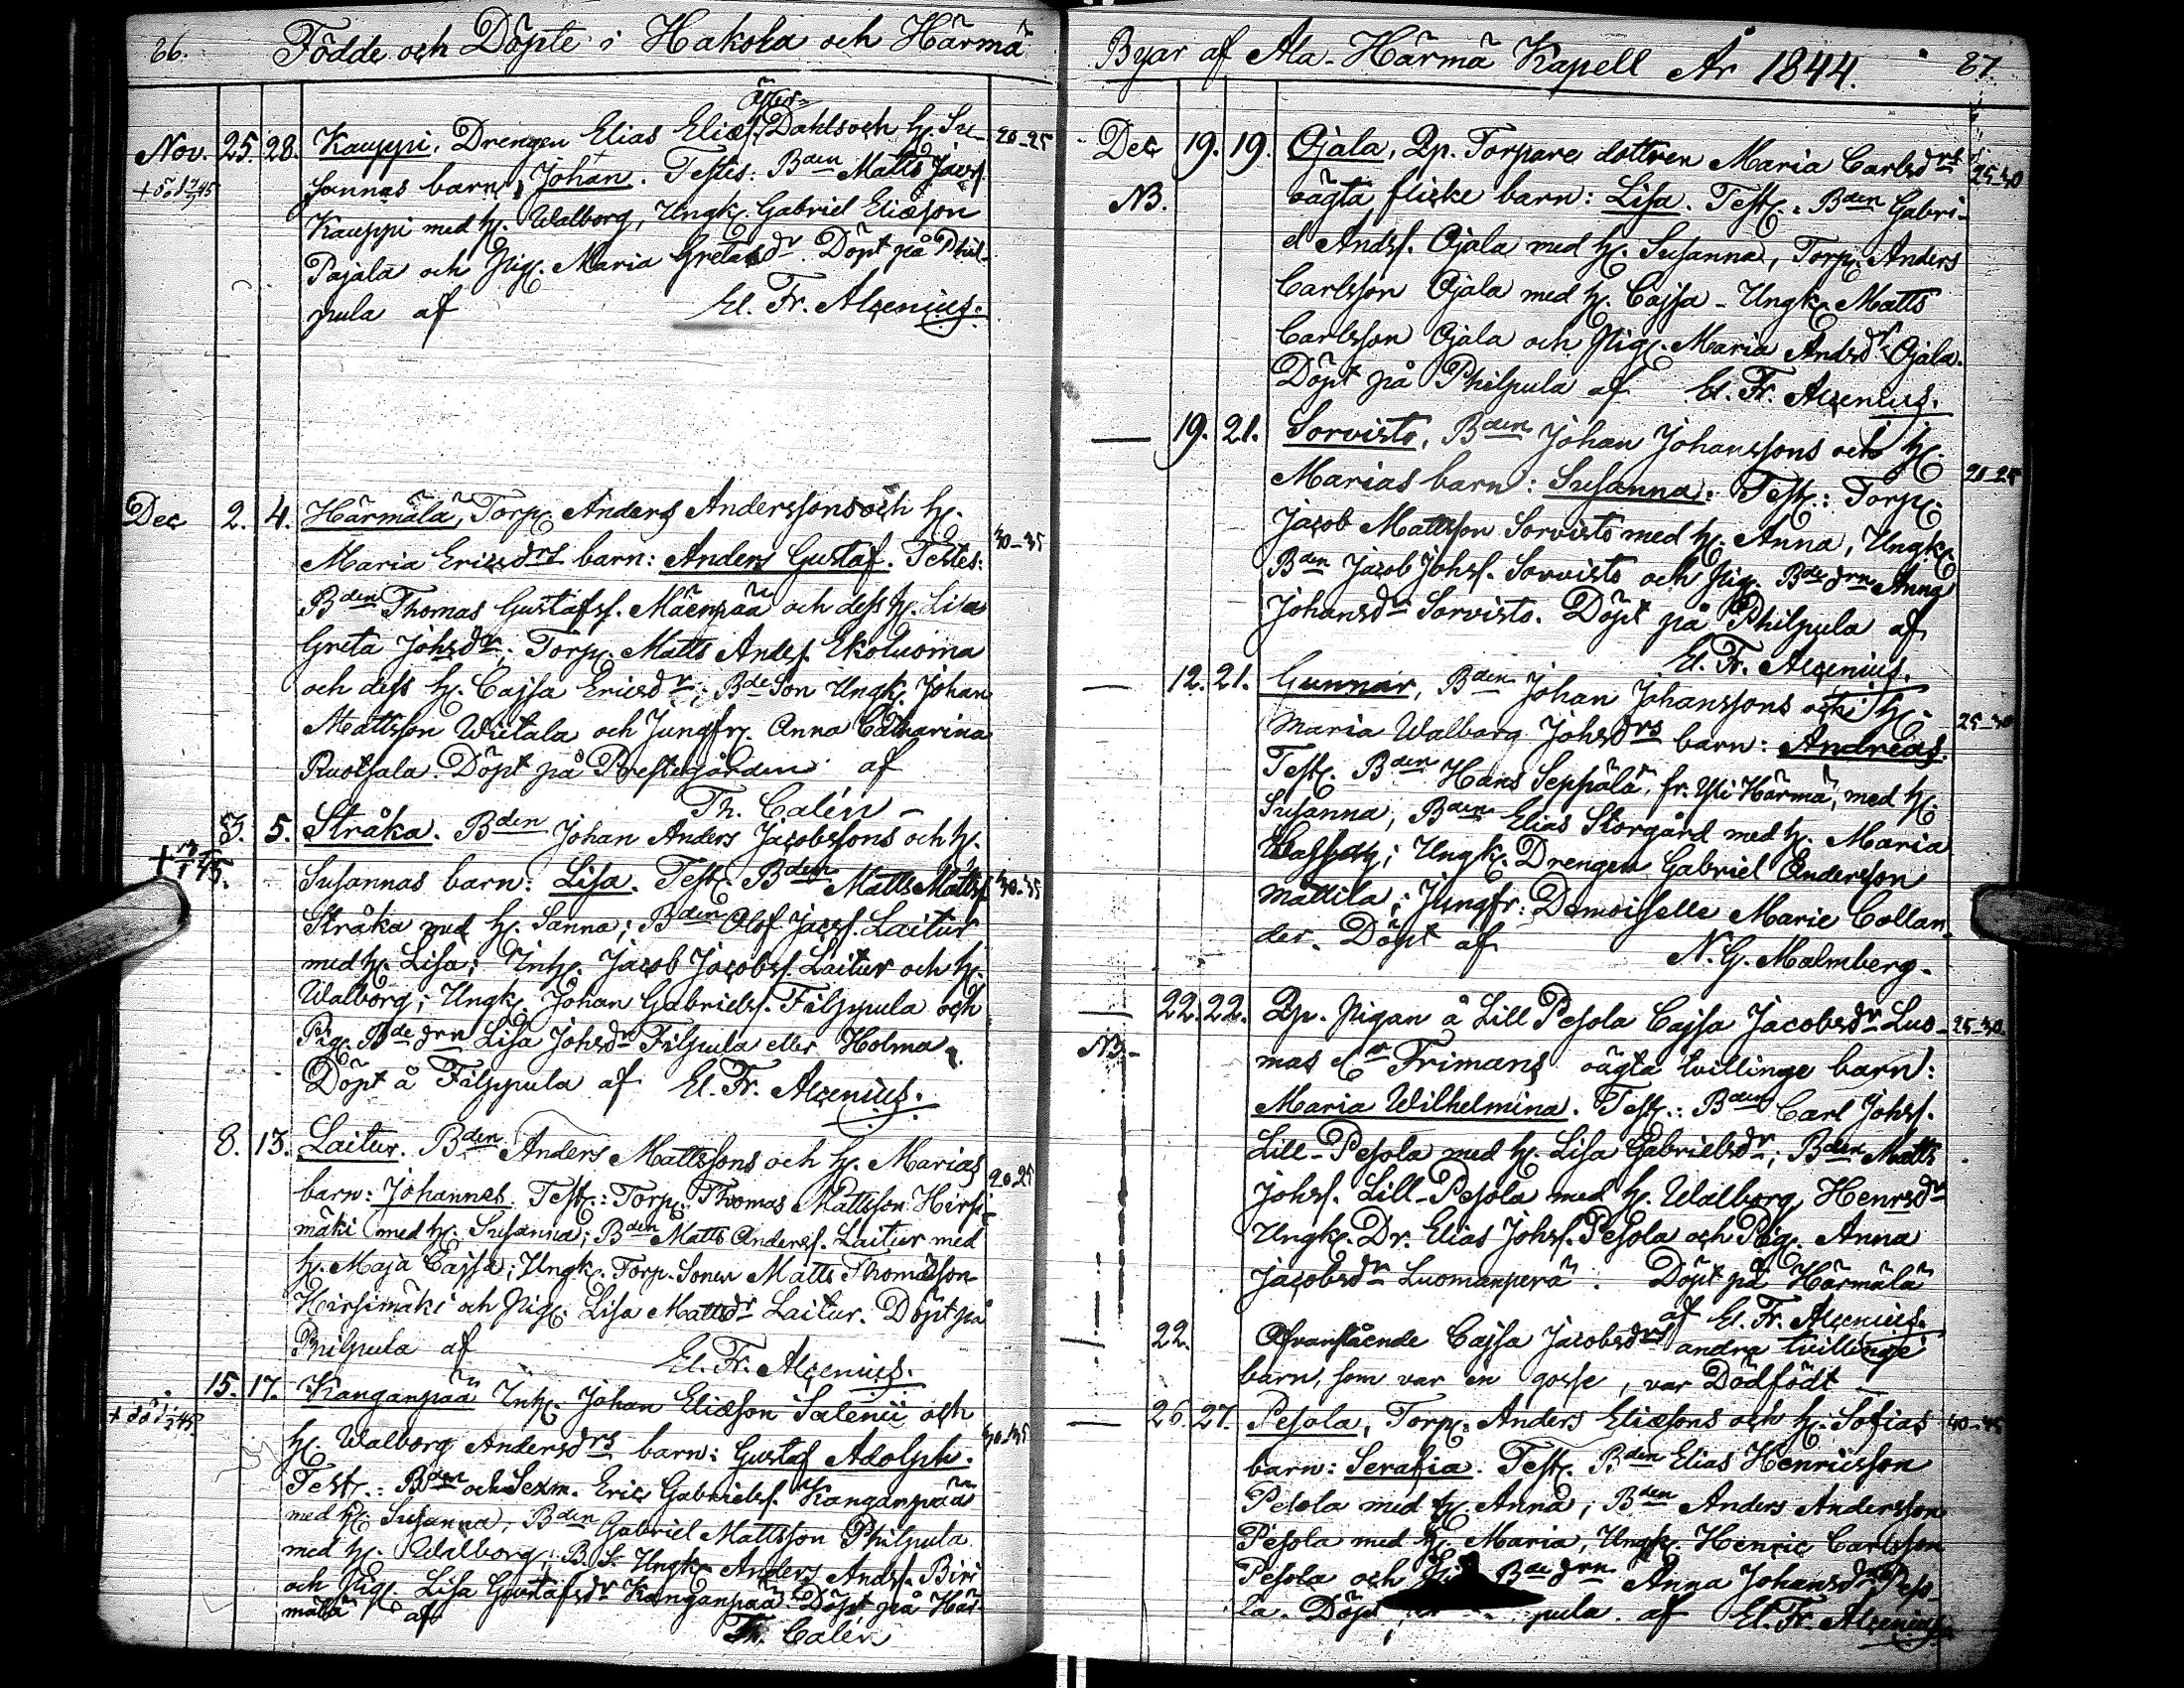 86. Födde och Döpte i Hakola och Härmä
Nov. 25. 28. Kauppi, Drengen Elias Eliæs. Dahls och h. Su- 20-25
sannas barn, Johan. Testes: Bden Matts Jacs.
Kauppi med h. Walborg, Ungk. Gabriel Eliæson
Pajala och Pig. Maria Gretasdr. Döpt på Phil-
pula af El. Fr. Alcenius.
Dec 2. 4. Härmälä, Torp. Anders Anderssons och h.
30-35
Maria Ericsdrs barn: Anders Gustaf. Testes:
Bden Thomas Gustafss. Mäenpää och dess h. Lisa
Greta Johsdr; Torp. Matts Anders. Ekoluoma
och dess h. Cajsa Ericsdr; Bde Son Ungk. Johan
Mattsson Wiitala och Jungfr. Anna Catharina
Ruotsala. Döpt på Prestegården af
Th. Calén
3. 5. Stråka. Bden Johan Anders Jacobssons och h.
Susannas barn: Lisa. Test. Bden Matts Mattss. 30-35
Stråka med h. Sanna; Bden Olof Jacss. Laitur
med h. Lisa; Inh. Jacob Jacobss. Laitur och h.
Walborg; Ungk. Johan Gabrielss. Filppula och
Pig. Bde drn Lisa Johsdr Filpula eller Holma.
Döpt å Fälppula af El. Fr. Alcenius.
8. 13. Laitur. Bden Anders Mattssons och h. Marias 20-25
barn: Johannes. Test.: Torp. Thomas Mattsson Hirsi-
mäki med h. Susanna; Bden Matts Anderss. Laitur med
h. Maja Cajsa; Ungk. Torp. Sonen Matts Thomasson
Hirsimäki och Pig. Lisa Mattsdr Laitur. Döpt på
Philpula af El. Fr. Alcenius.
15. 17. Kanganpää Inh. Johan Eliæson Salenii och
h. Walborg Andersdrs barn: Gustaf Adolph. 30-35
Test.: Bden och Sexm. Eric Gabrielss. Kanganpää
med h. Susanna; Bden Gabriel Mattsson Philpula
med h. Walborg; B. S. Ungk. Anders Andss. Biri
och Pig. Lisa Gustafsdr Kanganpää. Döpt på Här-
mälä af Th. Calén
Byar af Ala-Härmä Kapell År 1844. 87.
Dec 19. 19. Ojala, Qp. Torpare dottren Maria Carlsdrs 25-30
NB. oägta flicke barn: Lisa. Test.: Bden Gabri-
el Andss. Ojala med h. Susanna, Torp. Anders
Carlsson Ojala med h. Cajsa - Ungk. Matts
Carlsson Ojala och Pig. Maria Andsdr Ojala.
Döpt på Philpula af El. Fr. Alcenius.
19. 21. Sorvisto, Bden Johan Johanssons och h.
Marias barn: Susanna. Test.: Torp. 20-25
Jacob Mattsson Sorvisto med h. Anna, Ungk.
Bden Jacob Johss. Sorvisto och Pig. Bde drn Anna
Johansdr Sorvisto. Döpt på Philpula af
El. Fr. Alcenius.
12. 21. Gunnar, Bden Johan Johanssons och h.
Maria Walborg Johsdrs barn: Andreas. 25-30
Test. Bden Hans Seppälä, fr. Yli Härmä, med h.
Susanna; Bden Elias Storgård med h. Maria
Ungk. Drengen Gabriel Andersson
Mattila; Jungfr: Demoiselle Marie Collan-
der. Döpt af N. G. Malmberg.
22. 22. Qp. Pigan å Lill Pesola Cajsa Jacobsdr Luo- 25-30
NB. mas cr Frimans oägta tvillinge barn:
Maria Wilhelmina. Test.: Bden Carl Johss.
Lill-Pesola med h. Lisa Gabrielsdr; Bden Matts
Johss. Lill-Pesola med h. Walborg Henrsdr
Ungk. Dr. Elias Johss. Pesola och Pig. Anna
Jacobsdr Luomanperä. Döpt på Härmälä
af El. Fr. Alcenius.
22. Ofvanstående Cajsa Jacobsdrs andra tvillinge
barn, som var en gosse, var Dödfödt
26. 27. Pesola, Torp. Anders Eliæsons och h. Sofias 40-45
barn: Serafia. Test. Bden Elias Henricsson
Pesola med h. Anna; Bden Anders Andersson
Pesola med h. Maria, Ungk. Henric Carlsson
Pesola och Bde drn Anna Johansdr Peso-
la. Döpt pula af El. Fr. Alcenius.